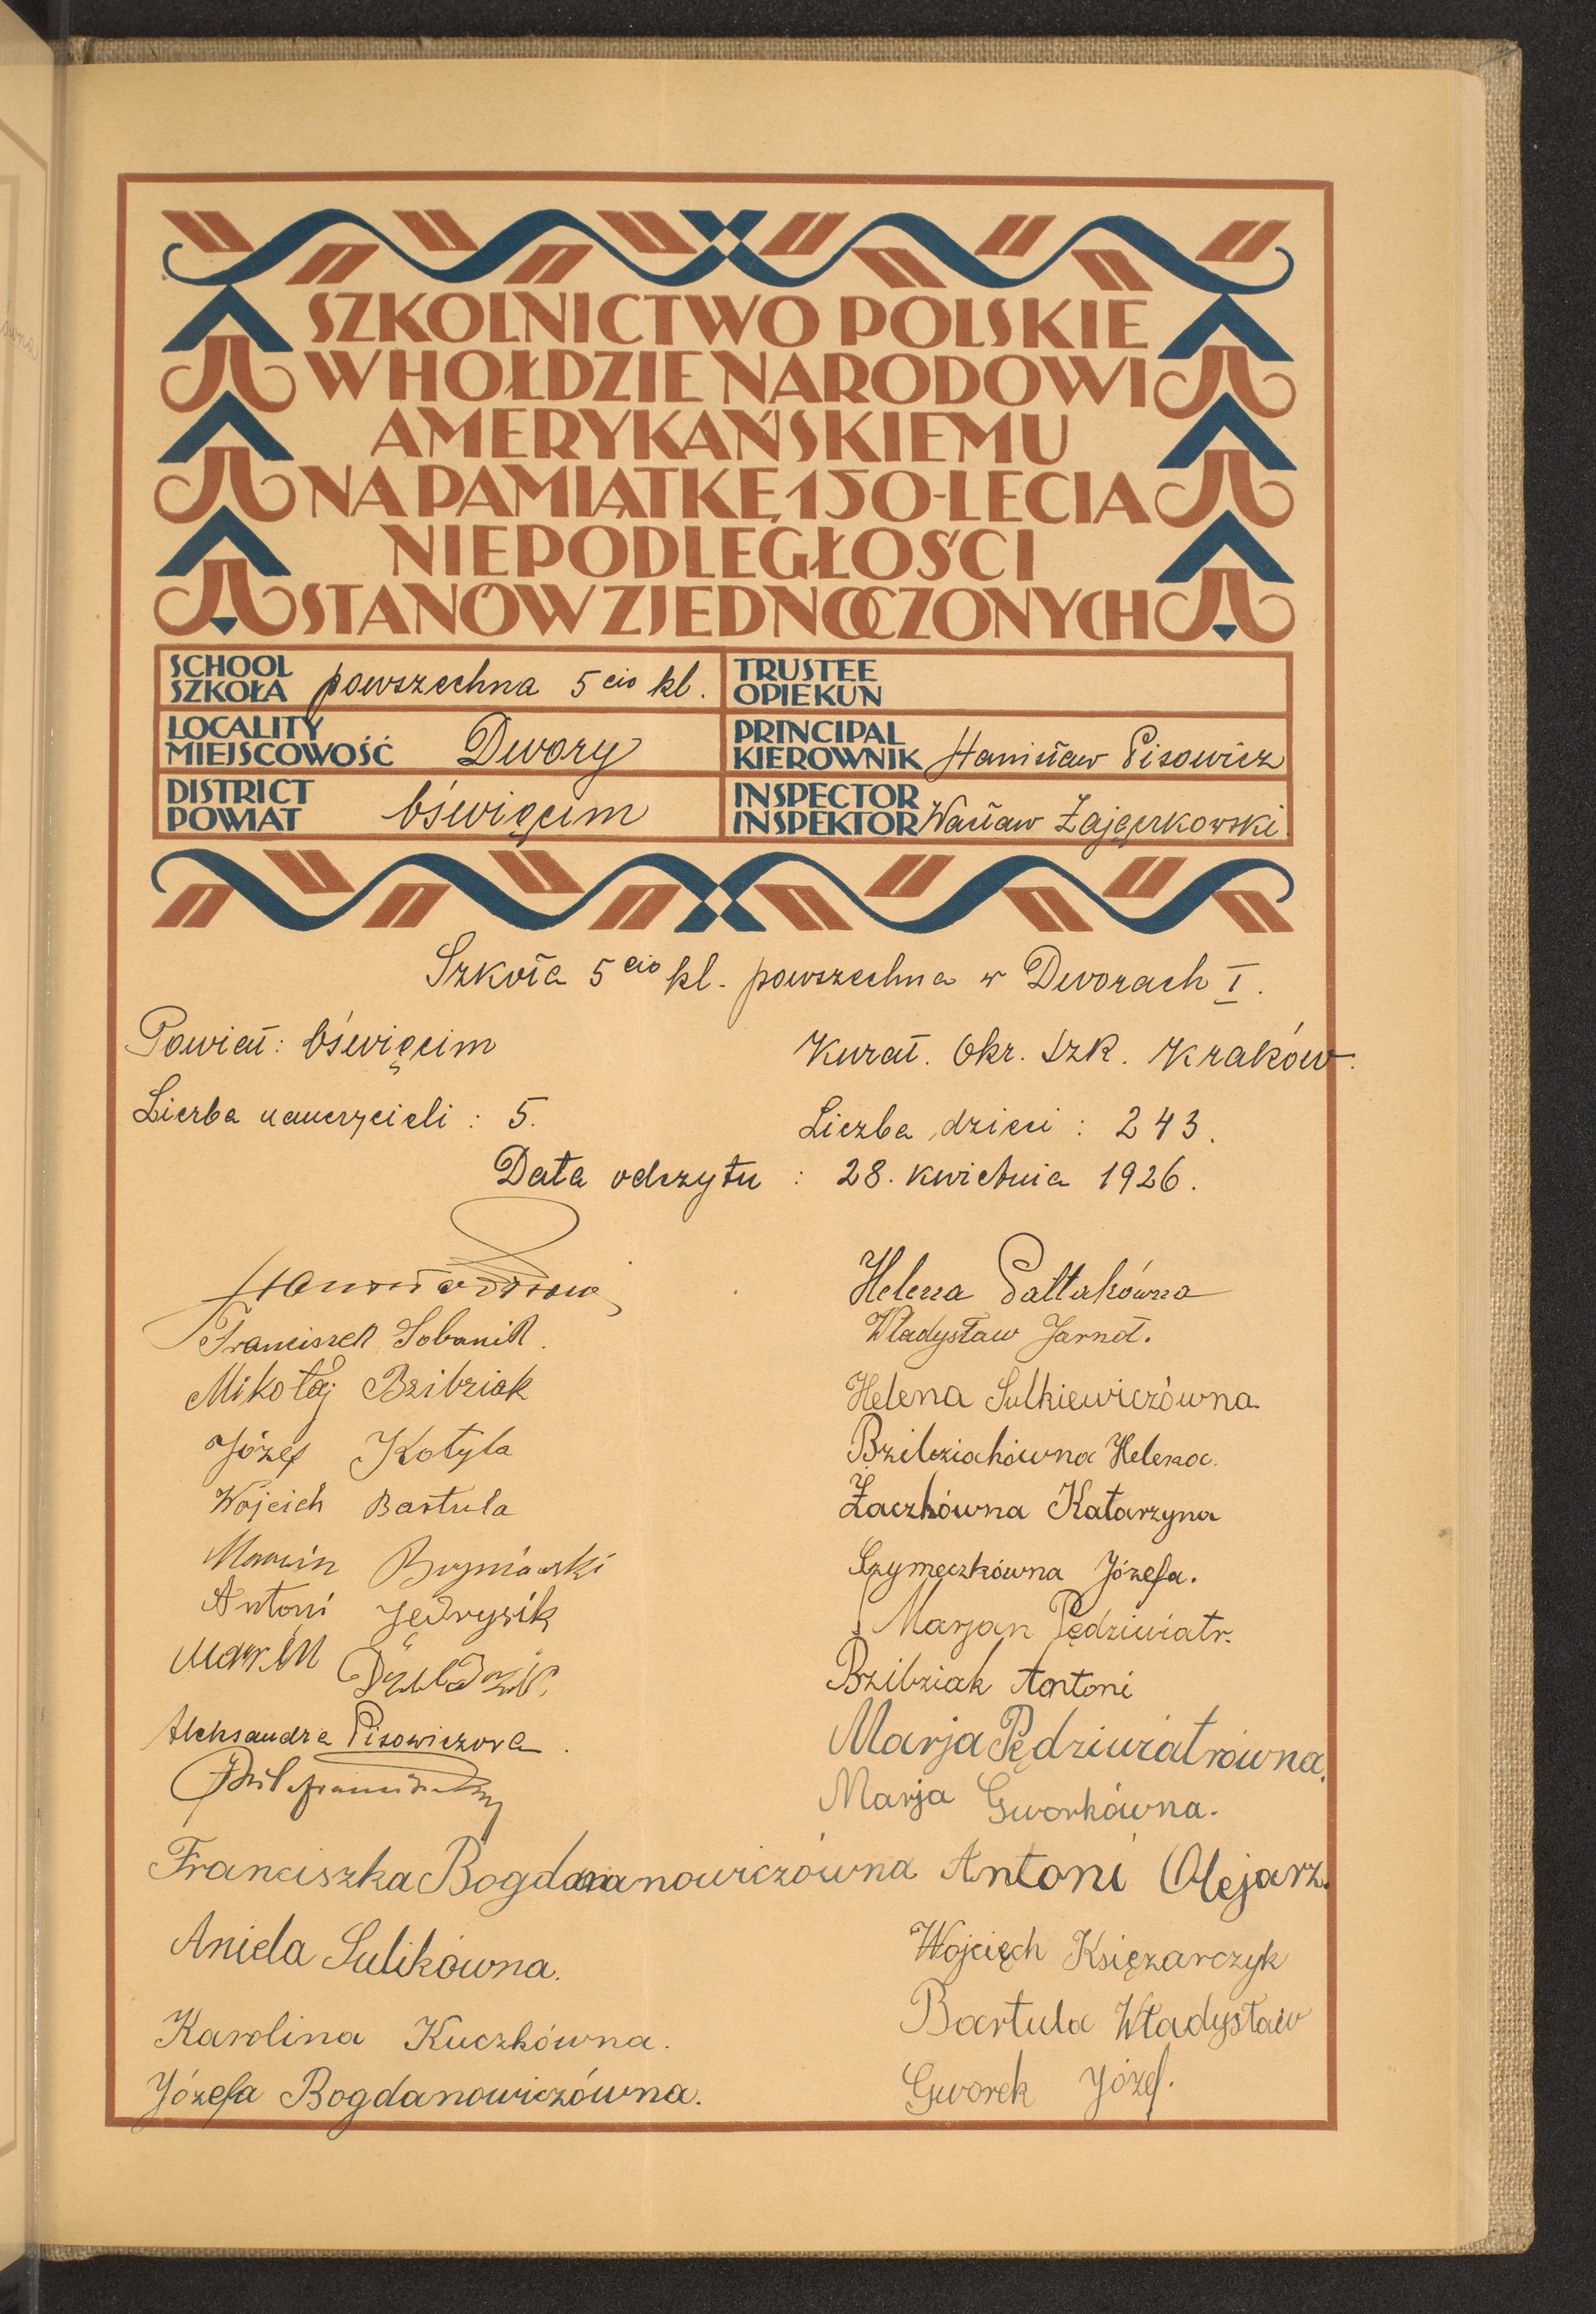 SZKOLNICTWO POLSKIE
W HOŁDZIE NARODOWI
AMERYKAŃSKIEMU
NA PAMIĄTKĘ 150-LECIA
NIEPODLEGŁOŚCI
STANÓW ZJEDNOCZONYCH
SCHOOL
SZKOŁA powszechna 5cio kl.
TRUSTEE
OPIEKUN
LOCALITY
MIEJSCOWOŚĆ Dwory
PRINCIPAL
KIEROWNIK Stanisław Pisowicz
DISTRICT
POWIAT Oświęcim
INSPECTOR
INSPEKTOR Wacław Zajączkowski
Szkoła 5cio kl. powszechna w Dworach I.
Powiat: Oświęcim
Kurat. Okr. Szk. Kraków.
Liczba nauczycieli: 5.
Liczba dzieci: 243.
Data odczytu: 28. kwietnia 1926.
Franciszek Sobanik.
Mikołaj Bzibziak
Józef Kotyla
Wojcich Bartula
Antoni Jędrysik
Marcin
Aleksandra Pisowiczova.
Franciszka Bogdananowiczówna
Aniela Sulikówna.
Karolina Kuczkówna.
Józefa Bogdanowiczówna.
Helena Pałtakówna
Władysław Jarnot.
Helena Sulkiewiczówna.
Bzibziakówna Helena.
Żaczkówna Katarzyna
Szymeczkówna Józefa.
Marjan Pędziwiatr.
Bzibziak Antoni
Marja Pędziwiatrówna.
Marja Gworkówna.
Antoni Olejarz.
Wojcięch Księżarczyk
Bartula Władysław
Gworek Józef.